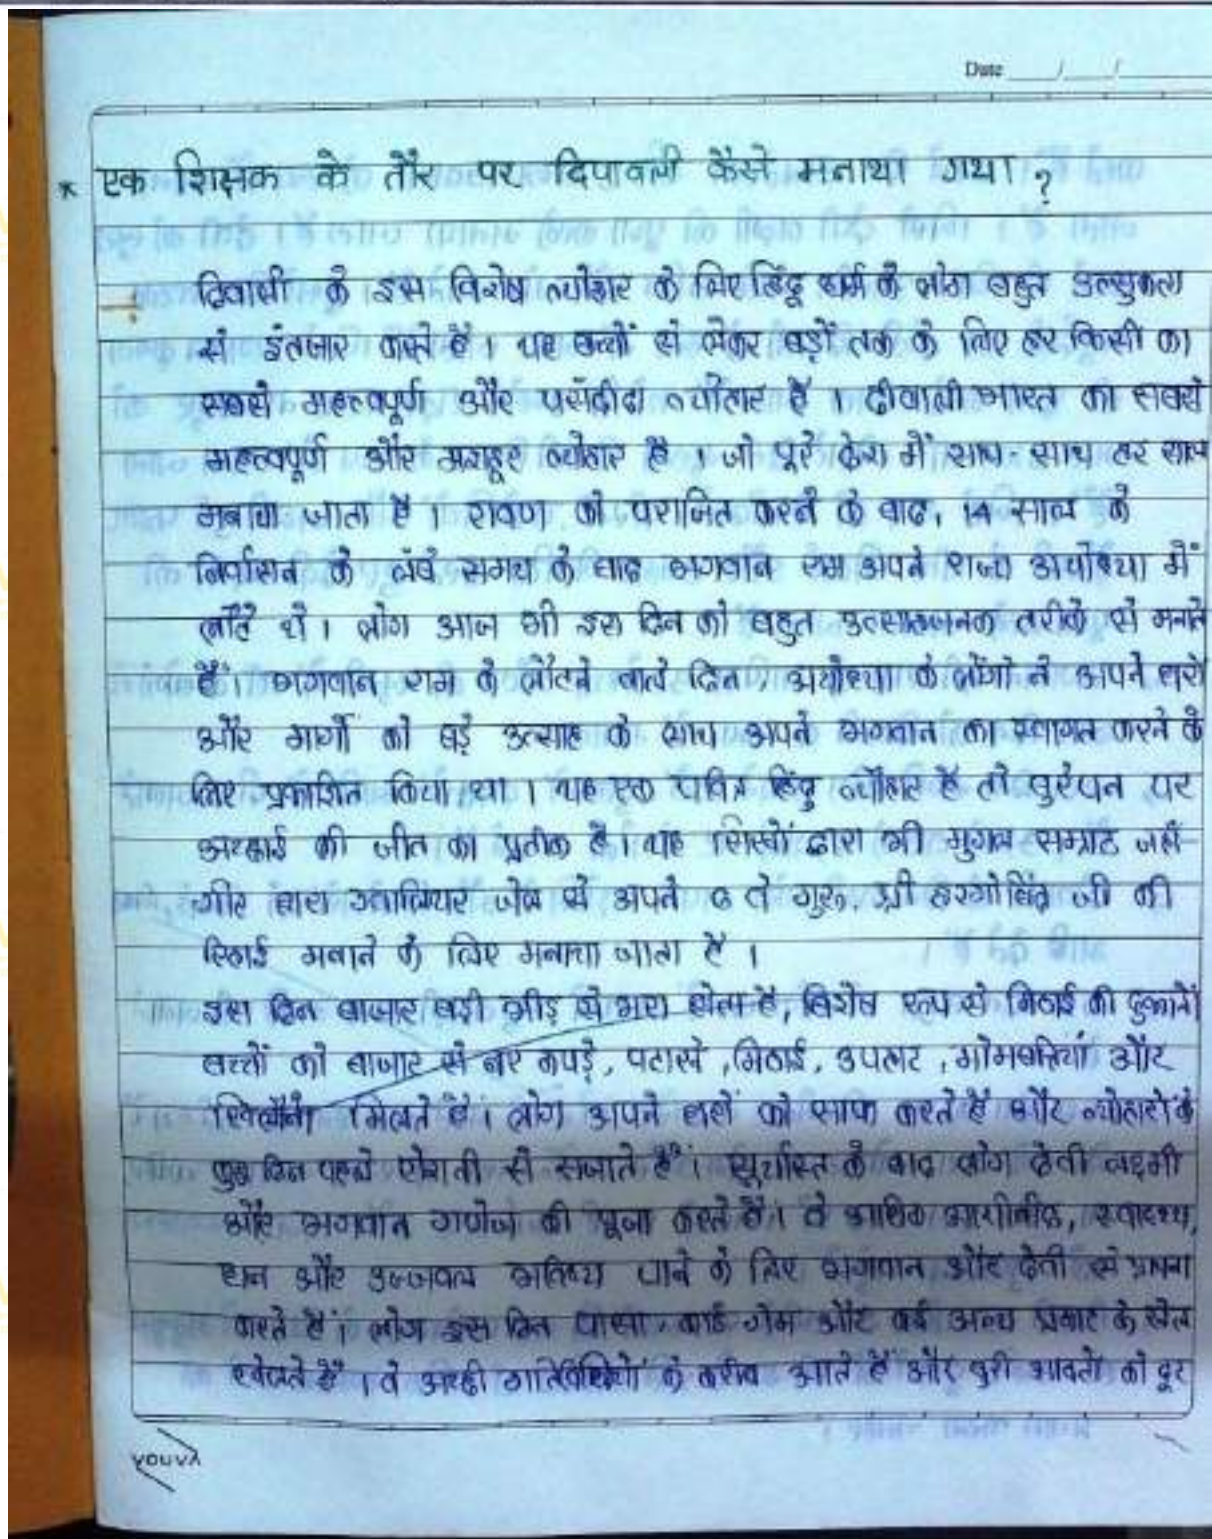 Date __/__/__
* एक शिक्षक के तौर पर दिपावली कैसे मनाया गया ?
दिवाली के इस विशेष त्योहार के लिए हिंदू धर्म के लोग बहुत उत्सुकता
से इंतजार करते है । यह बच्चों से लेकर बड़ों तक के लिए हर किसी का
सबसे महत्वपूर्ण और पसंदीदा त्योहार है । दीवाली भारत का सबसे
महत्वपूर्ण और मशहूर त्योहार है । जो पूरे देश में साथ-साथ हर साल
मनाया जाता है । रावण को पराजित करने के बाद, 14 साल के
निर्वासन के लंबे समय के बाद भगवान राम अपने राज्य अयोध्या में
लौटे थे । लोग आज भी इस दिन को बहुत उत्साहजनक तरीके से मनाते
है । भगवान राम के लौटने वाले दिन, अयोध्या के लोंगो ने अपने घरो
और मार्गो को बड़े उत्साह के साथ अपने भगवान का स्वागत करने के
लिए प्रकाशित किया था । यह एक पवित्र हिंदु त्योहार है जो बुरेपन पर
अच्छाई की जीत का प्रतीक है । यह सिखों द्वारा भी मुगल सम्राट जहाँ-
गीर द्वारा ग्वालियर जेल से अपने 6 वे गुरु, श्री हरगोबिंद जी की
रिहाई मनाने के लिए मनाया जाता है ।
इस दिन बाजार बड़ी भीड़ से भरा होता है, विशेष रूप से मिठाई की दुकानें
बच्चों को बाजार से नए कपड़े, पटाखे, मिठाई, उपहार, मोमबत्तियां और
खिलौने मिलते है । लोग अपने घरों को साफ करते है और त्योहारों के
कुछ दिन पहले रोशनी से सजाते है । सूर्यास्त के बाद लोग देवी लक्ष्मी
और भगवान गणेश की पूजा करते है । वे अधिक आशीर्वाद, स्वास्थ्य,
धन और उज्जवल भविष्य पाने के लिए भगवान और देवी से प्रार्थना
करते है । लोग इस दिन पासा, कार्ड गेम और कई अन्य प्रकार के खेल
खेलते है । वे अच्छी गतिविधियों के करीब आते है और बुरी आदतों को दूर
youva